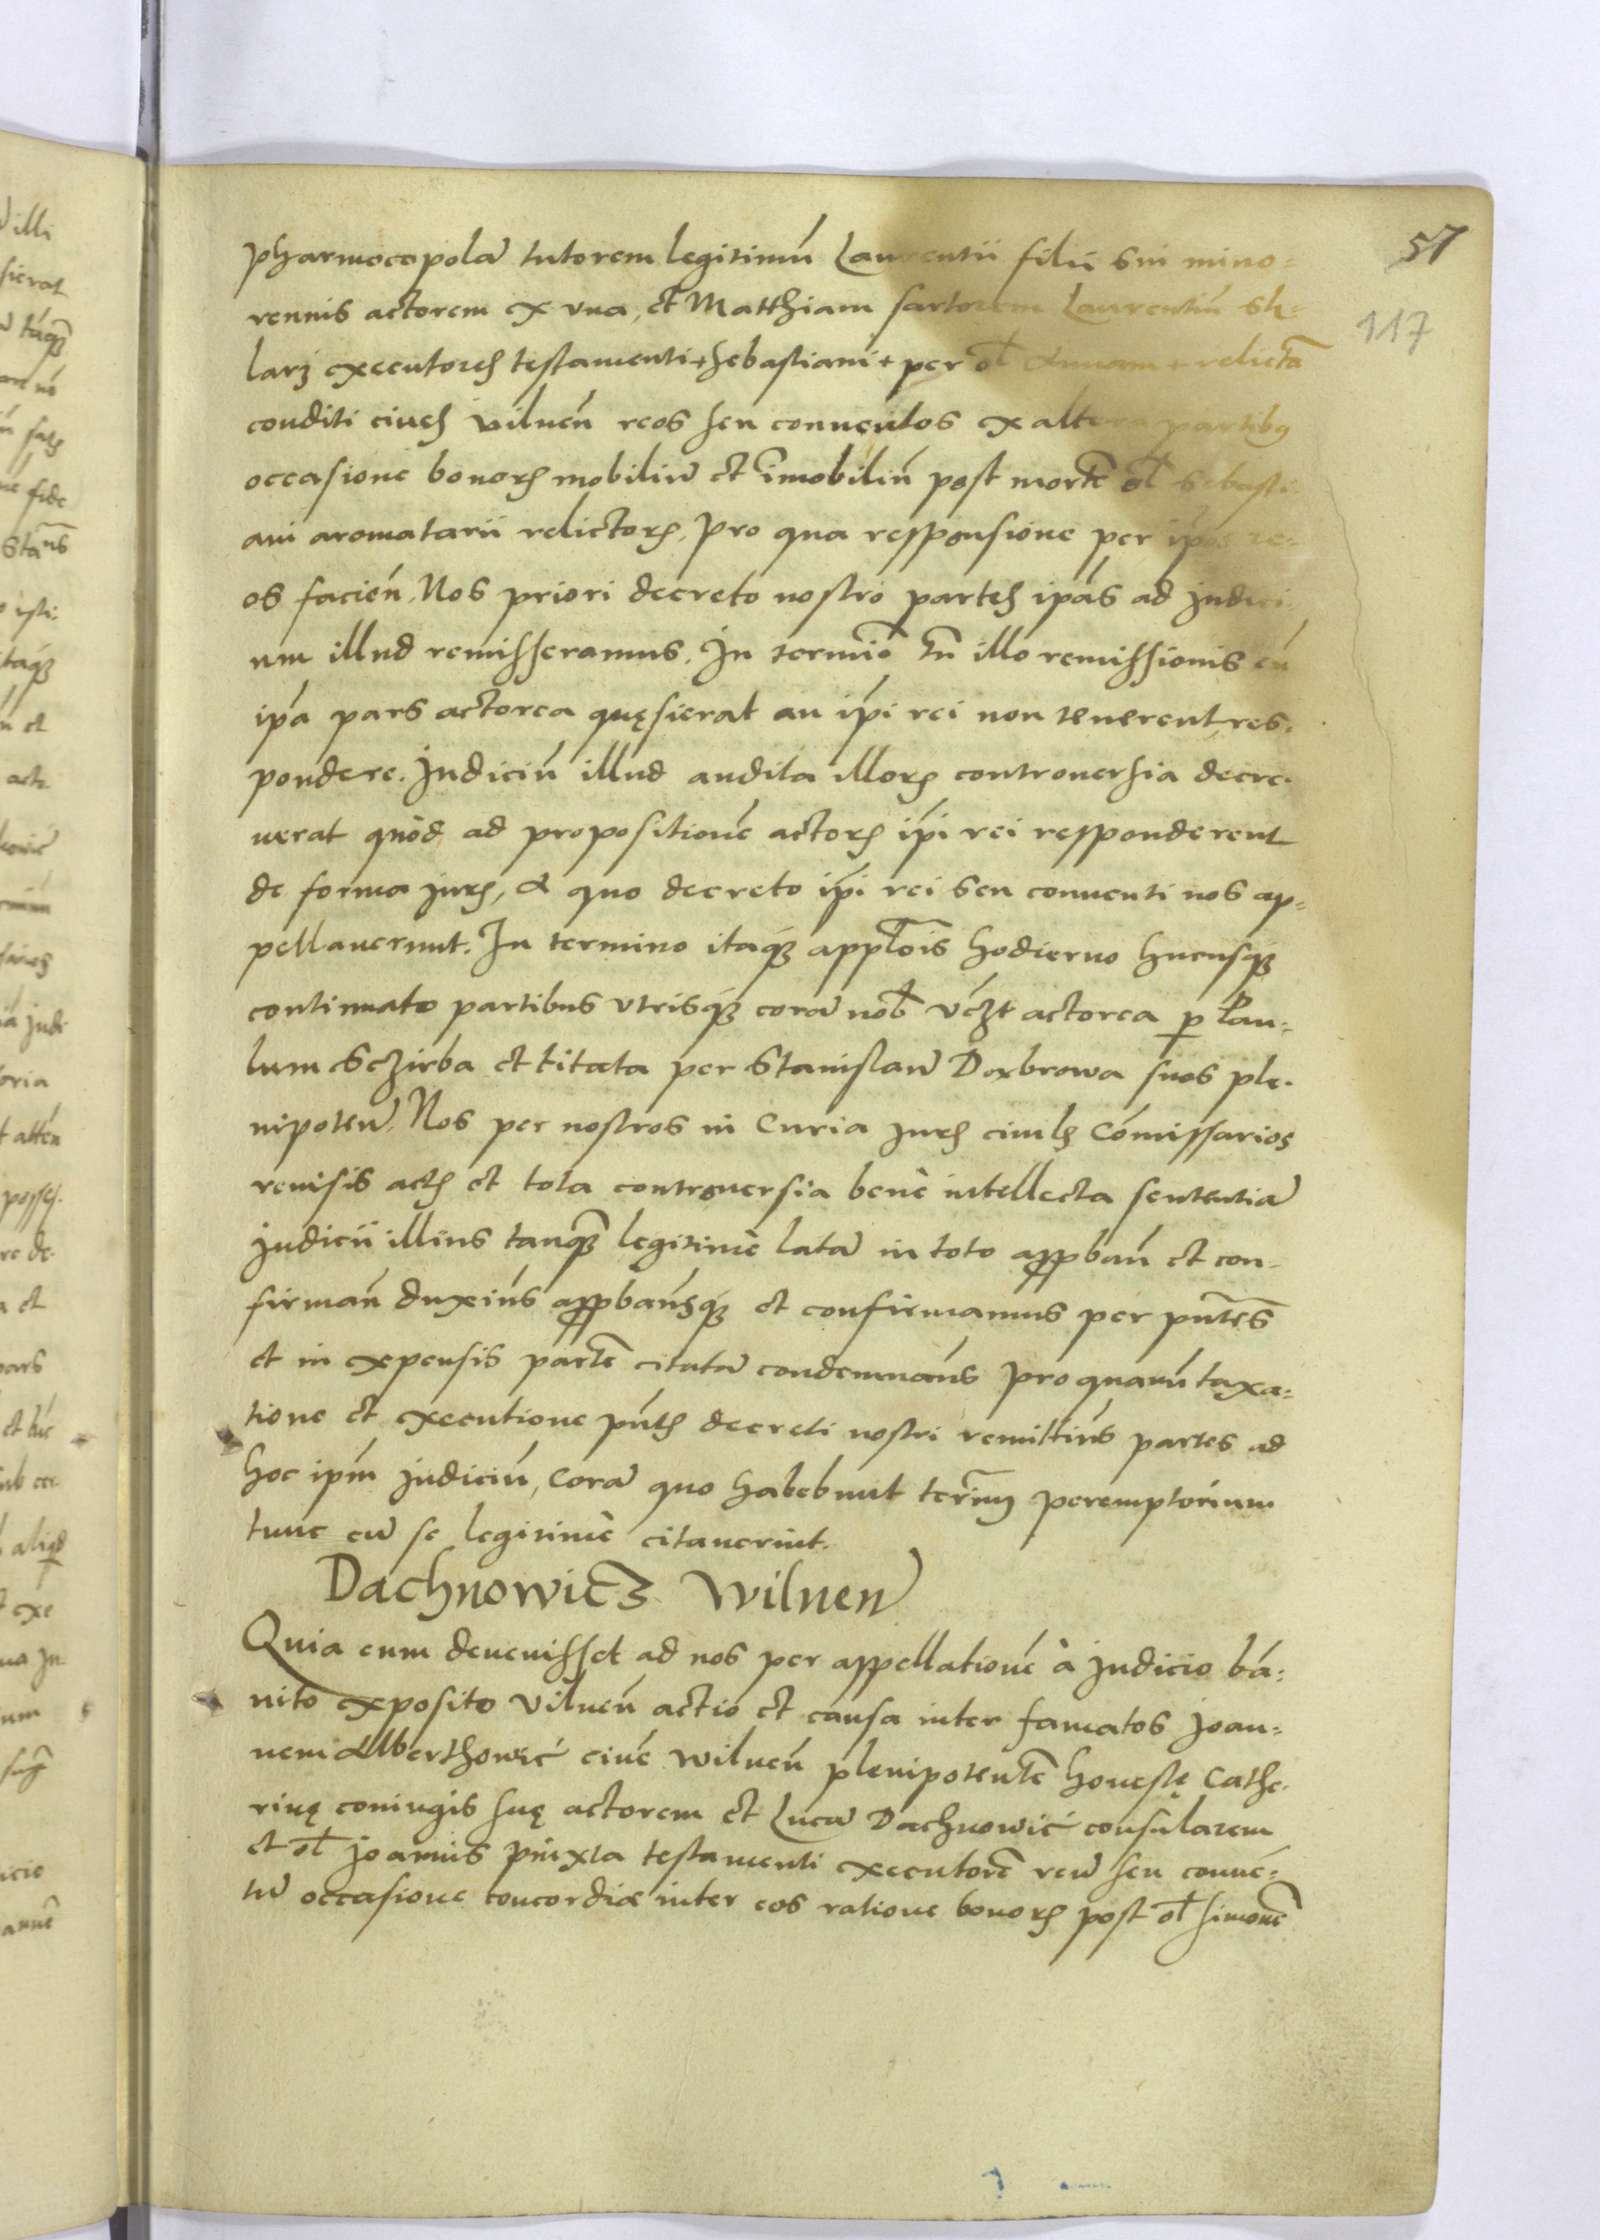 57
117
pharmocopolā tutorem legitimū Laurentii filii sui mino=
rennis actorem ex vna, et Matthiam sartorem Laurentiū
executores testamenti + Sebastiani + per ol Annam + relictā
conditi ciues vilnen̄ reos seu conuentos ex altera partibus
occasione bonorꝫ mobiliū et īmobiliū post mortē ol Sebasti-
ani aromatarii relictorꝫ, pro qua responsione per ipos re-
os facien̄, Nos priori decreto nostro partes ipās ad Judici-
um illud remisseramus. In termīo tn̄ illo remissionis cū
ipā pars actorea quęsierat an ipī rei non tenerent res-
pondere. Judiciū illud audita illorꝫ controuersia decre-
uerat quòd ad propositionē actorꝫ ipī rei responderent
de forma juris, A quo decreto ipī rei seu conuenti nos ap=
pellauerunt. In termino itaq̃ appl̄ois hodierno hucusq̃
continuato partibus vtrisq̃ corā nob̄ vcꝫt actorea p Pau=
lum Sczirba et citata per Stanislaū Dąbrowa suos ple-
nipoten̄. Nos per nostros in Curia juris ciuilis Cōmissarios
reuisis actis et tota controuersia benè intellecta sententiā
judicii illius tanq̃ legitimè latā in toto appban̄ et con-
firman̄ duxim̄s appbam̄sq̃ et confirmamus per pn̄tes
et in expensis partē citatā condemnam̄s pro quarū taxa=
tione et executione pn̄tis decreti nostri remittim̄s partes ad
hoc ipm̄ judiciū, Corā quo habebunt termīū peremptorium
tunc cū se legitimè citauerint.
Dachnowicz Wilnen̄
Quia cum deuenisset ad nos per appellationē à judicio bā=
nito exposito Vilnen̄ actio et causa inter famatos Joan=
nem Alberthowić ciuē Wilnen̄ plenipotentē honestę Cathe-
rinę coniugis suę actorem et Lucā Dachnowić consularem
et ol Joannis Piuxta testamenti executorē reū seu conuē=
tū occasione concordiæ inter eos ratione bonorꝫ post ol Simonē